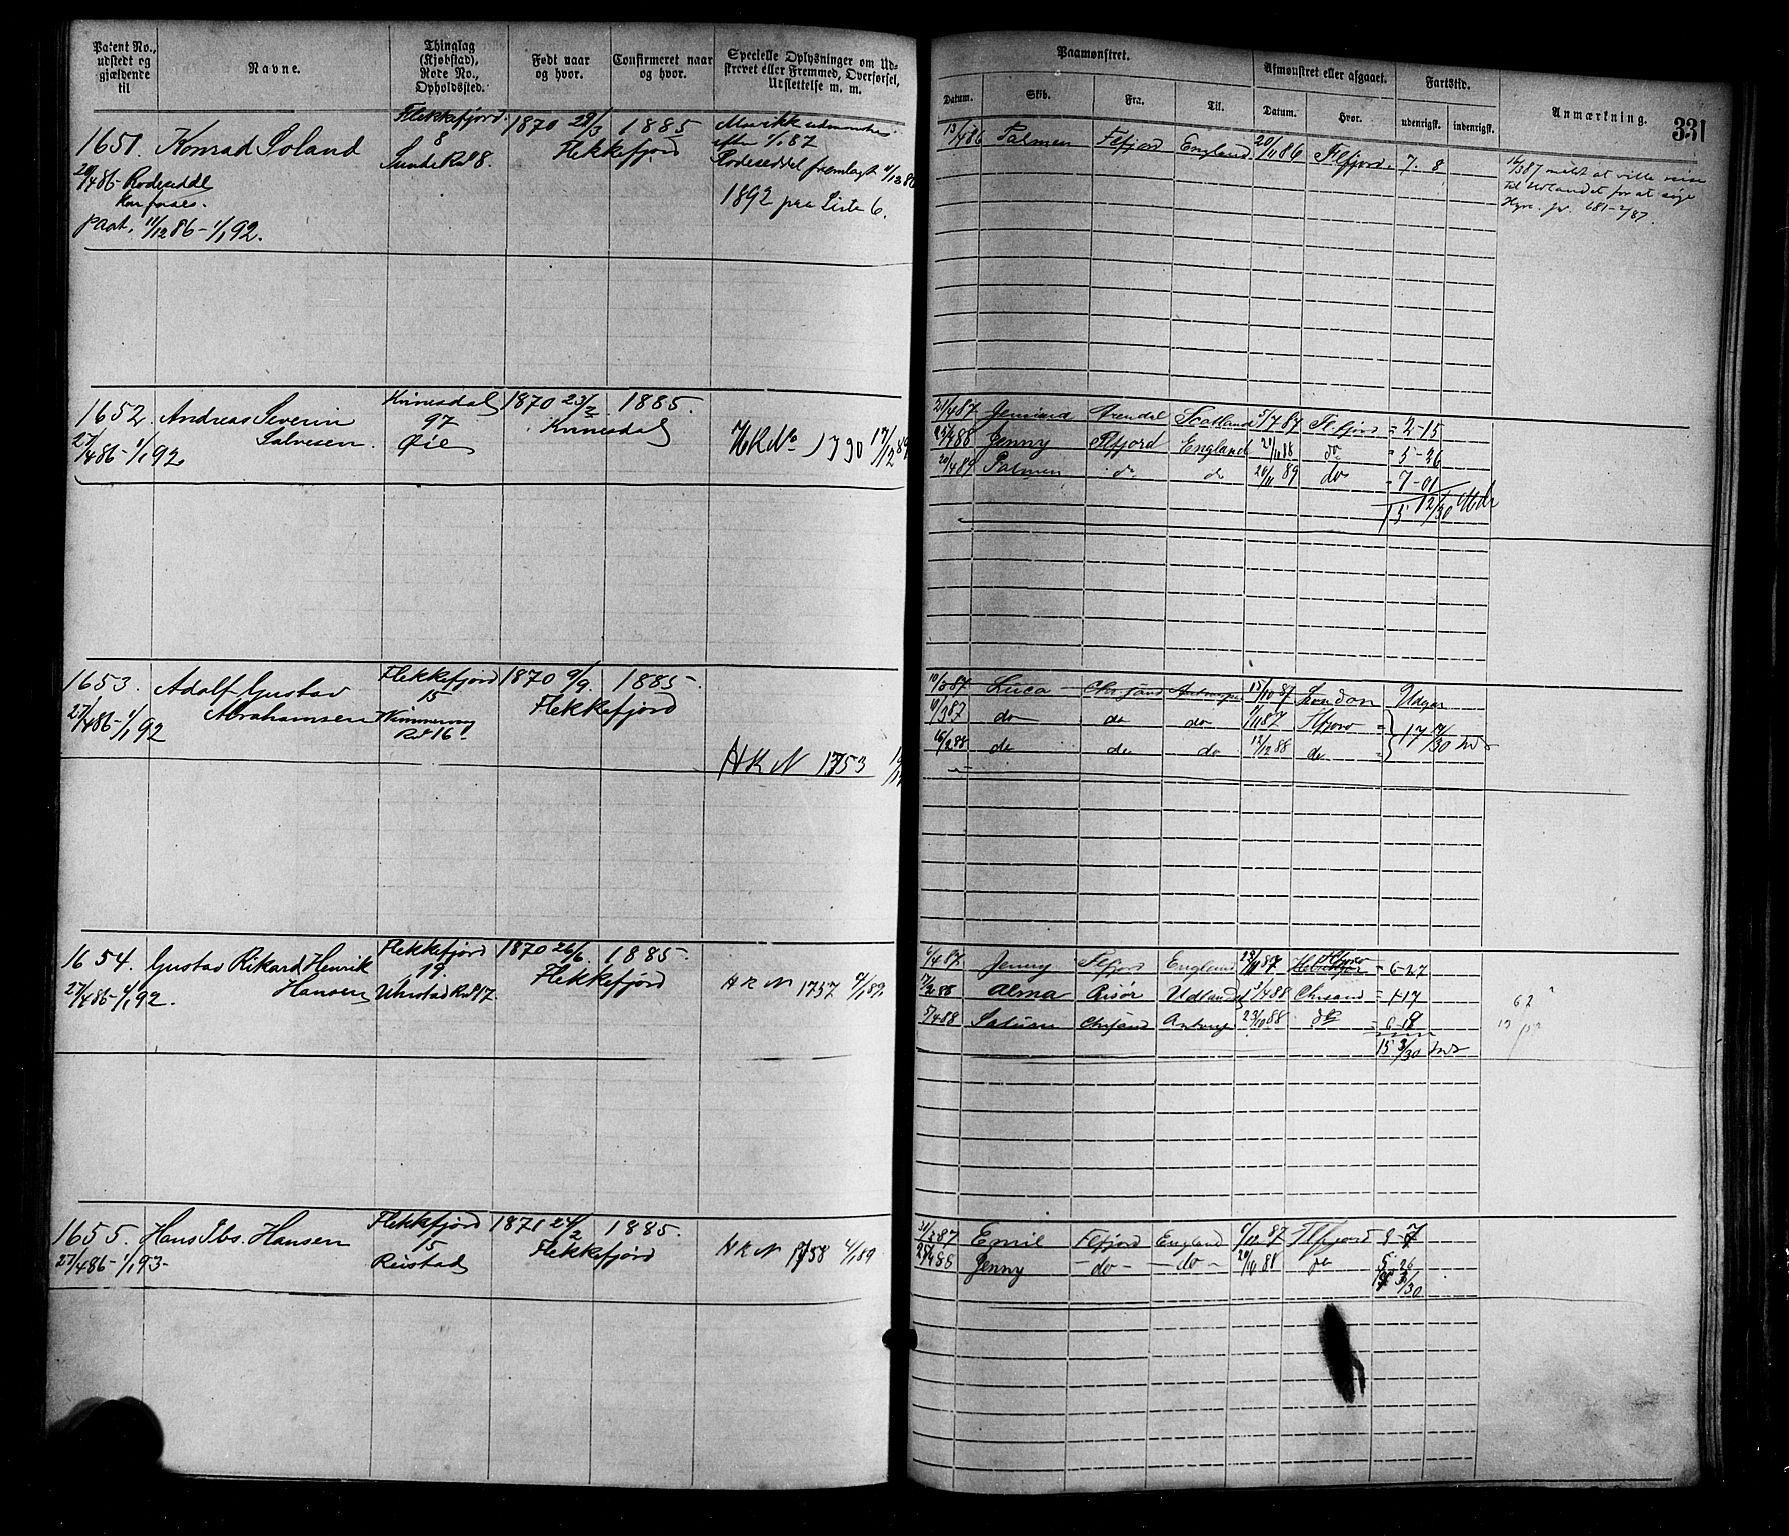 Patent No., udstedt og gjældende til
Navne.
Thinglag (Kjøbstad), Rode No., Opholdssted.
Født naar og hvor.
Confirmeret naar og hvor.
Specielle Oplysninger om Udskrevet eller Fremmed, Overførsel, Udslettelse m. m.
Paamønstret.
Afmønstret eller afgaaet.
Fartstid.
Anmærkning.
331
Datum.
Skib.
Fra.
Til.
Datum.
Hvor.
udenrigsk.
indenrigsk.
1651. Konrad Soland
Flekkefjord. 1870 29/3 1885
8 Flekkefjord
Sunde Rd. 8.
20/4 86 - Rodeseddl
Paat. 11/12 86 - 1/1 92.
efter 1/1 87
Rodeseddel fremlagt 11/12 86
1892 paa Liste 6.
13/4 86 Palmen Flfjord England 20/11 86 Flfjord. 7. 8
14/3 87 meldt at ville reise
til Udlandet for at søge
Hyre. jr. 681-2/87.
1652. Andreas Severin
Salvesen.
27/4 86 - 1/1 92.
Kvinesdal 1870 23/2 1885.
97 Kvinesdal
Øie
HKNo 1730 17/12 89
21/4 87 Arendal Scotland 5/7 87 Flfjord = 2-15
25/4 88 Jenny Flfjord England 21/11 88 do = 5-26
20/4 89 Palmen do do 20/11 89 do - 7-01
15 12/30 Mdr
1653. Adolf Gustav
Abrahamsen
27/4 86 - 1/1 92
Flekkefjord 1870 9/9. 1885-
15 Flekkefjord
Rd. 16
HKN 1753
10/3 87 Luca Chrsand Antwerpen 15/10 87 London
11/3 87 do do do 11/11 87 Flfjord = 17 17/30
16/2 88 do do do 12/12 88 do
1654. Gustav Rikard Henrik
Hansen
27/4 86 - 1/1 92.
Flekkefjord 1870 26/6. 1885-
19. Flekkefjord
Uhrstad Rd. 17
HKN 1757 4/1 89.
6/4 87 Jenny Flfjord England 28/11 87 Flfjord = 6-27
17/2 88 Alma Risør Udlandet 2/4 88 Chrsand = 1-17
5/4 88 Saturn Chrsand Antwerp 23/10 88 do = 6-18
15 3/30
62
1655. Hans Ibs. Hansen
27/4 86 - 1/1 93-
Flekkefjord 1871 24/2 1885.
15 Flekkefjord
Reistad
HKN 1758 4/1 89
31/3 87 Emil Flfjord England 6/12 87 Flfjord 8-7
25/4 88 Jenny - do - - do - 20/11 88 do 5-26
3/30